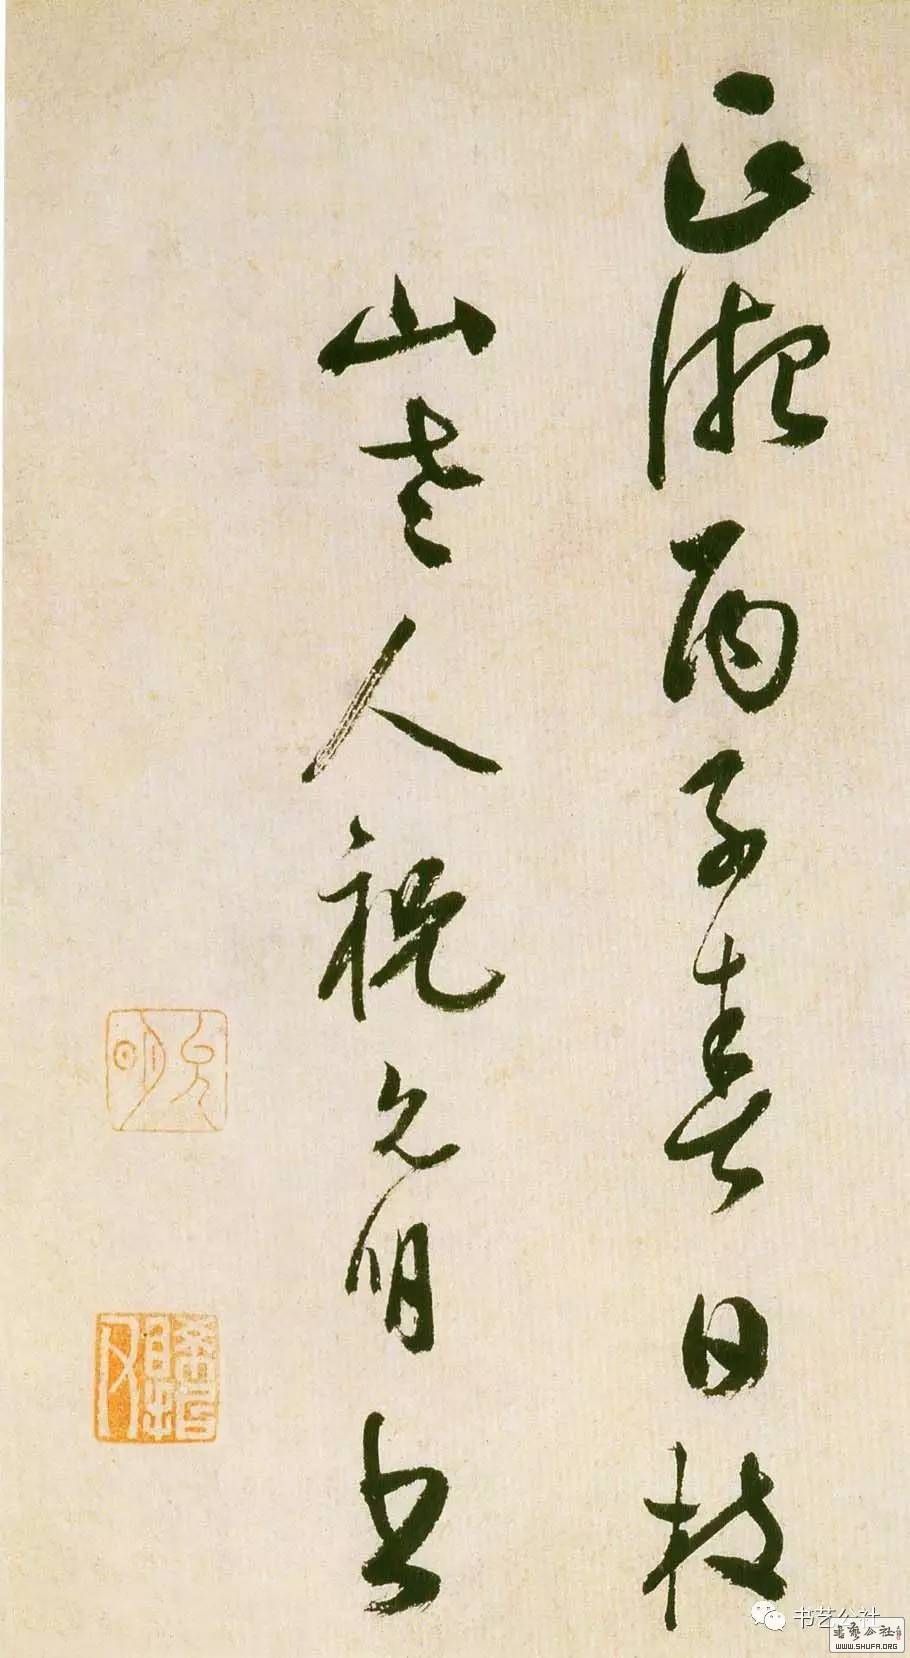 正德丙子春日枝
山老人祝允明書
允明
书艺公社
書藝公社
WWW.SHUFA.ORG